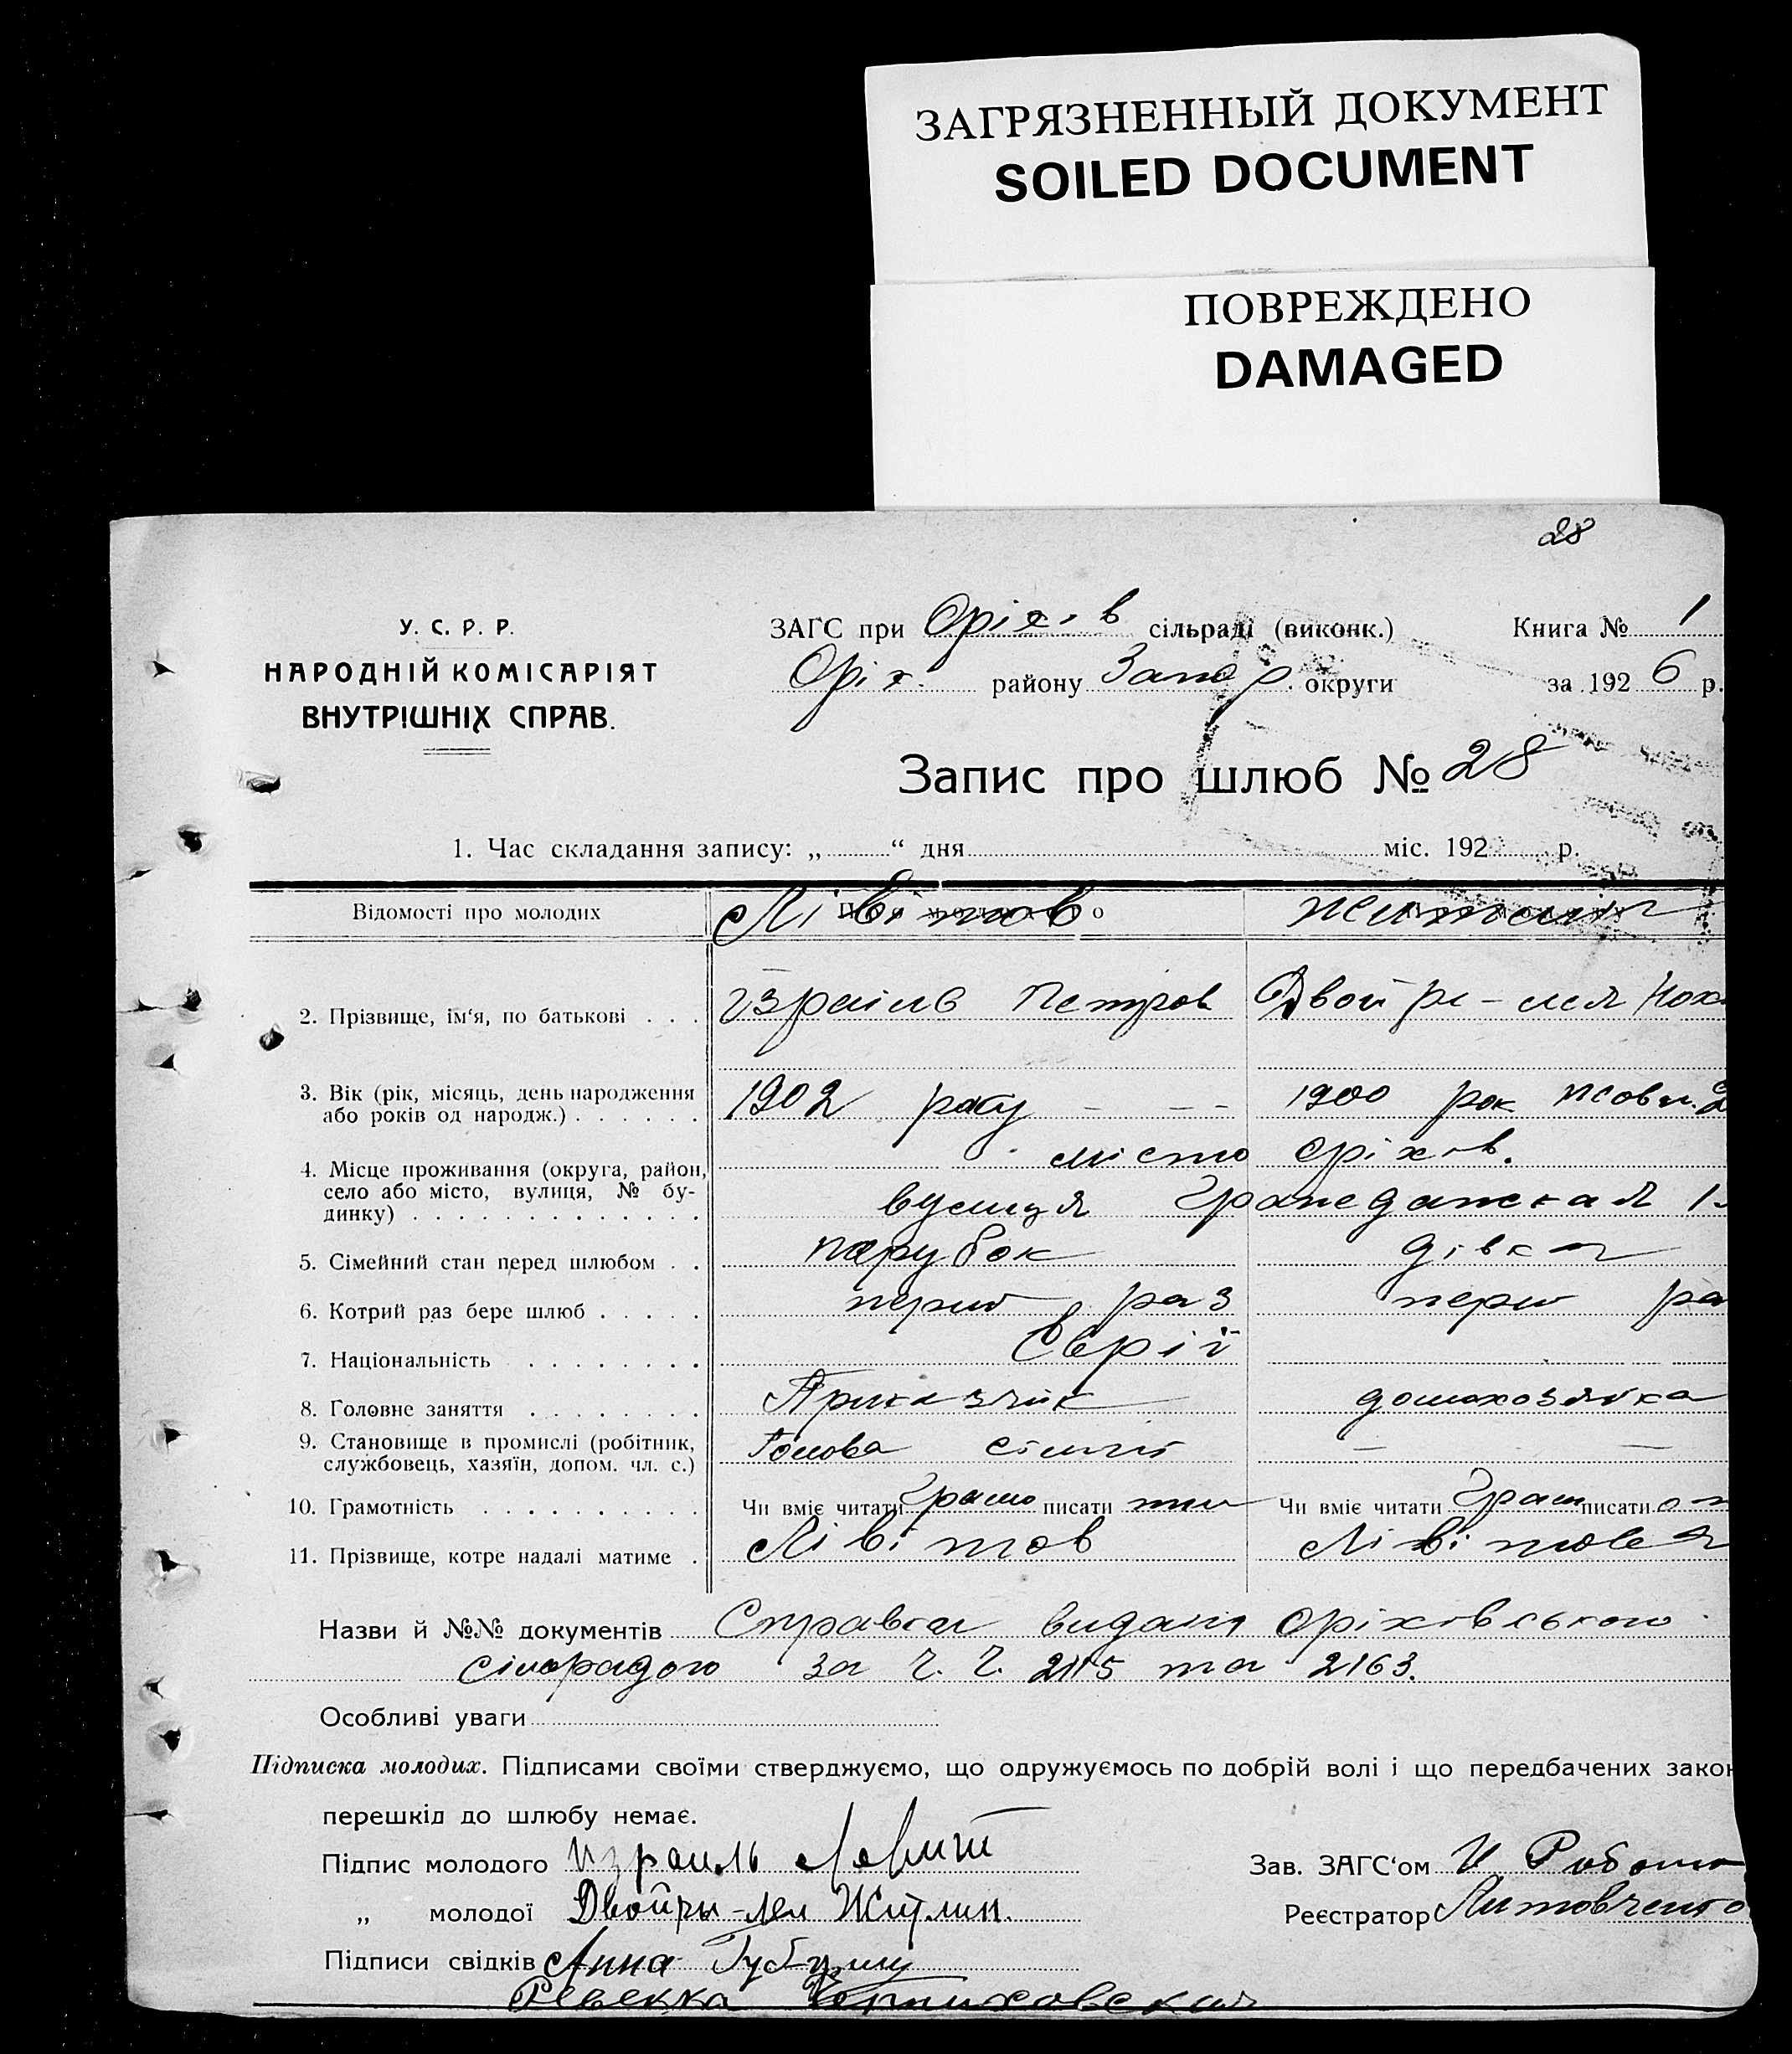 ЗАГРЯЗНЕННЫЙ ДОКУМЕНТ
SOILED DOCUMENT
ПОВРЕЖДЕНО
DAMAGED
28
У. С. Р. Р.
НАРОДНІЙ КОМІСАРІЯТ
ВНУТРІШНІХ СПРАВ.
ЗАГС при Оріхів сільраді (виконк.) Книга № 1
Оріх. району Запор. округи за 1926 р.
Запис про шлюб № 28
1. Час складання запису: „ “ дня міс. 192 р.
Відомості про молодих Лівітов
2. Прізвище, ім‘я, по батькові . . . Ізраіль Петров Двойра-лея Нох
3. Вік (рік, місяць, день народження
або років од народж.) . . . . . . 1902 року - - - 1900 рок жовт. 2
4. Місце проживання (округа, район, місто Оріхів.
село або місто, вулиця, № бу-
динку) . . . . . . . . . . . . . вулиця Гражданская
5. Сімейний стан перед шлюбом . . парубок дівка
6. Котрий раз бере шлюб . . . . . перш раз перш ра
7. Національність . . . . . . . . Єврії
8. Головне заняття . . . . . . . . Приказчик домохозяйка
9. Становище в промислі (робітник,
службовець, хазяїн, допом. чл. с.) Голова — —
10. Грамотність . . . . . . . . . . Чи вміє читати Грамо писати тни Чи вміє читати Грам писати
11. Прізвище, котре надалі матиме . Лівітов Лівітова
Назви й №№ документів Справка видана Оріхівською
сільрадою за ч. ч. 2115 та 2163.
Особливі уваги
Підписка молодих. Підписами своїми стверджуємо, що одружуємось по добрій волі і що передбачених закон
перешкід до шлюбу немає.
Підпис молодого Израиль Левит Зав. ЗАГС‘ом И
„ молодої Двойра-Лея Житлин. Реєстратор Литовченко
Підписи свідків Анна
Ревекка